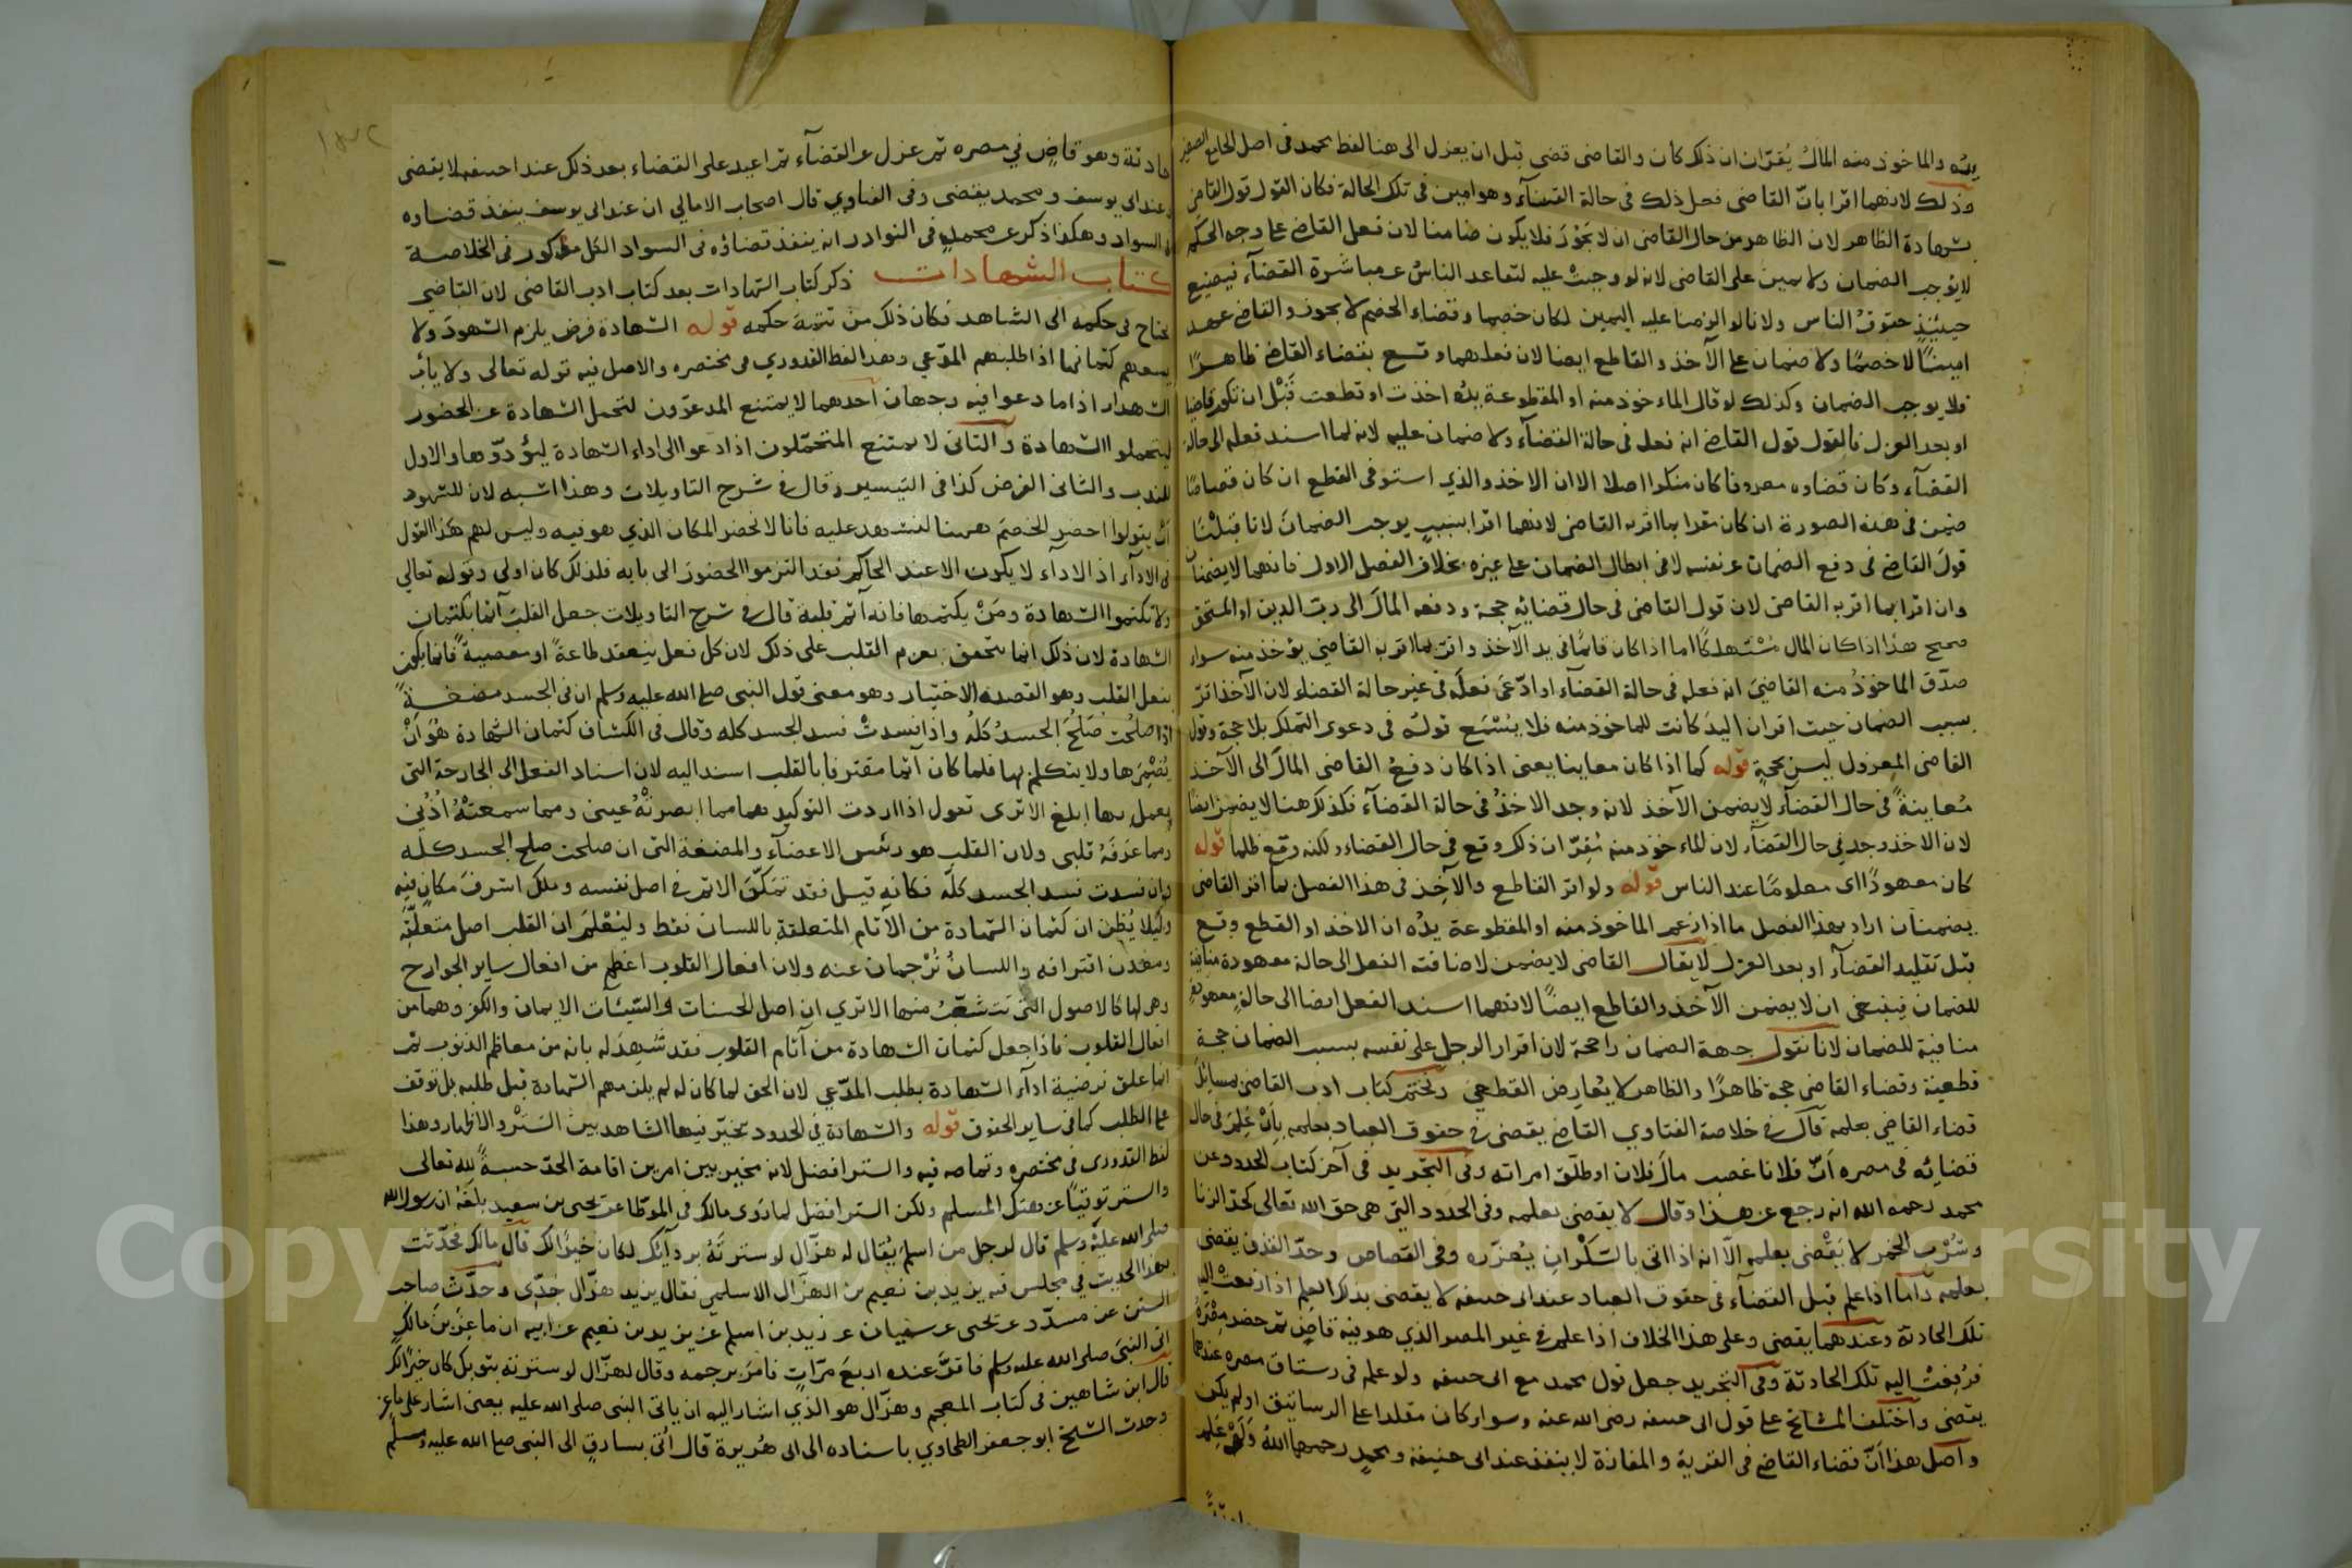 يده والماخوذ منه المال يُقرّان ان ذلك كان والقاضى قضى قبل ان يعزل الى هنا لفظ محمد فى اصل الجامع الصغير
وذلك لانهما اقرا بانّ القاضى فعل ذلك فى حالة القضآء وهو امين فى تلك الحالة فكان القول قول القاضى
بشهادة الظاهر لان الظاهر من حال القاضى ان لا يجوْرَ فلا يكون ضامنا لان فعل القاضى على وجه الحكم
لا يوجب الضمان ولا يمين على القاضى لانه لو وجبتْ عليه لتقاعد الناسُ عن مباشرة القضآء فيضيع
حينئذٍ حقوقُ الناس ولانا لو الزمنا عليه اليمين لكان خصما وقضاء الخصم لا يجوز والقاضى عهد
امينًا لا خصمًا ولا ضمان على الآخذ والقاطع ايضا لان فعلهما وقع بقضاء القاضى ظاهرًا
فلا يوجب الضمان وكذلك لو قال الماخوذ منه او المقطوعة يدُه اخذت او قطعت قَبْل ان تكون قاضيا
او بعد العزل فالقول قول القاضى انه فعل فى حالة القضآء ولا ضمان عليه لانه لما اسند فعله الى حالة
القضآء وكان قضاوه معروفا كان منكرا اصلا الا ان الاخذ والذي استوفى القطع ان كان قصاصًا
ضمن فى هذه الصورة ان كان مقرا بما اقر به القاضى لانهما اقرا بسببٍ يوجب الضمانَ لانا قبلْنا
قولَ القاضى فى دفع الضمان عن نفسه لا فى ابطال الضمان على غيره بخلاف الفصل الاول فانهما لا يضمنان
وان اقرا بما اقر به القاضى لان قول القاضى فى حال قضائه حجة ودفعه المالَ الى ربّ الدين او المستحق
صحيح هذا اذا كان المال مُسْتهلكًا اما اذا كان قائمًا فى يد الآخذ واقرّ بما اقر به القاضى يؤخذ منه سواء
صدّق الماخوذُ منه القاضىَ انه فعله فى حالة القضآء او ادّعى فعلَه فى غير حالة القضاء لان الآخذ اقرّ
بسبب الضمان حيث اقر ان اليدَ كانت للماخوذ منه فلا يُسْمَع قولُه فى دعوى التملك بلا حجة وقول
القاضى المعزول ليس بحجةٍ قوله كما اذا كان معاينا يعنى اذا كان دفعُ القاضى المالَ الى الآخذ
مُعاينةً فى حال القضآء لا يضمن الآخذ لانه وجد الاخذُ فى حالة القضآء فكذلك هنا لا يضمن ايضا
لان الاخذ وجد فى حال القضآء لان الماءخوذ منه مُقِرّ ان ذلك وقع فى حال القضاء ولكنه وقع ظلما قوله
كان معهودًا اى معلومًا عند الناس قوله ولو اقر القاطع والآخِذ فى هذا الفصل بما اقر القاضى
يضمنان اراد بهذا الفصل ما اذا زعم الماخوذ منه او المقطوعة يدُه ان الاخذ او القطع وقع
قبل تقليد القضآء او بعد العزل لا يقال القاضى لا يضمن لاضافته الفعل الى حالة معهودة منافية
للضمان فينبغى ان لا يضمن الآخذ والقاطع ايضًا لانهما اسند الفعل ايضا الى حالةٍ معهودةٍ
منافية للضمان لانا نقول جهة الضمان راجحة لان اقرار الرجل على نفسه بسبب الضمان حجة
قطعية وقضاء القاضى حجة ظاهرًا والظاهر لا يُعارض القطعى ونختم كتاب ادب القاضى بمسائل
قضاء القاضي بعلمه قال فى خلاصة الفتاوي القاضى يقضى فى حقوق العباد بعلمه بانْ عَلِمَ فى حال
قضائه فى مصره انّ فلانا غصب مالَ فلان او طلّق امراته وفى التجريد فى آخر كتاب الحدود عن
محمد رحمه الله انه رجع عن هذا وقال لا يقضى بعلمه وفى الحدود التى هى حق الله تعالى كحدّ الزنا
وشُرْب الخمر لا يَقْضى بعلمه الّا انه اذا اتى بالسَكْران يُعزّره وفى القصاص وحدّ القذف يقضى
بعلمه وأما اذا علم قبل القضآء فى حقوق العباد عند ابى حنيفه لا يقضى بذلك العلم اذا رفعتْ اليه
تلك الحادثة وعندهما يقضى وعلى هذا الخلاف اذا علم فى غير المصر الذي هو فيه قاضٍ ثم حضر مِصْرَهُ
فرُفِعتْ اليه تلك الحادثة وفى التجريد جعل قول محمد مع ابى حنيفه ولو علم فى رستاق مصره عندهما
يقضى واختلف المشائخ على قول ابى حنيفه رضى الله عنه وسوا كان مقلدا على الرساتيق او لم يكن
واصل هذا انّ قضاء القاضى فى القرية والمفازة لا ينفذ عند ابى حنيفة ومحمدٍ رحمهما اللهُ ولو عَلِمَ
حادثة وهو قاضٍ في مصره ثم عزل عن القضآء ثم اعيد على القضاء بعد ذلك عند ابى حنيفه لا يقضى
وعند ابى يوسف ومحمد يقضى وفى الفتاوي قال اصحاب الامالي ان عند ابى يوسف ينفذ قضاوه
فى السواد وهكذا ذكر عن محمدٍ فى النوادر انه ينفذ قضاؤه فى السواد الكل مذكور فى الخلاصة
كتاب الشهادات ذكر كتاب الشهادات بعد كتاب ادب القاضى لان القاضي
يحتاج فى حكمه الى الشاهد فكان ذلك من تتمة حكمه قوله الشهادة فرض يلزم الشهودَ ولا
يسعهم كتمانها اذا طلبهم المدّعي وهذا لفظ القدوري فى مختصره والاصل فيه قوله تعالى ولا يأب
الشهداء اذا ما دعوا فيه وجهان احدهما لا يمتنع المدعوّون لتحمل الشهادة عن الحضور
ليتحملوا الشهادة والثانى لا يمتنع المتحمّلون اذا دعوا الى اداء الشهادة ليُؤدّوها والاول
للندب والثانى الفرض كذا فى التيسير وقال فى شرح التاويلات وهذا اشبه لان للشهود
انْ يقولوا احضر الخصمَ ههنا لنشهد عليه فانا لا نحضر المكان الذي هو فيه وليس لهم هذا القول
فى الادآء اذ الادآء لا يكون الا عند الحاكم فقد التزموا الحضورَ الى بابه فلذلك كان اولى وقوله تعالي
ولا تكتموا الشهادة ومَنْ يكتمها فانه آثم قلبه قال فى شرح التاويلات جعل القلبَ آثما بكتمان
الشهادة لان ذلك انما يتحقق بعزم القلب على ذلك لان كل فعل ينعقد طاعةً او معصيةً فانما يكون
بفعل القلب وهو القصد والاختيار وهو معنى قول النبى صلى الله عليه وسلم ان فى الجسد مضغةً
اذا صلحُت صَلُحَ الجسدُ كلهُ واذا فسدتْ فسد الجسد كله وقال فى الكشاف كتمان الشهادة هوَ انْ
يُضْمِرَها ولا يتكلم بها فلما كان آثما مقترفا بالقلب اسند اليه لان اسناد الفعل الى الجارحة التى
يعمل بها ابلغ الا ترى تقول اذا اردت التوكيد هما مما ابصرتْهُ عينى ومما سمعتْهُ اُذُنِي
ومما عرَفَهُ قلبى ولان القلب هو رئيس الاعضآء والمضغة التى ان صلحت صلح الجسد كله
وان فسدت فسد الجسد كله فكانه قيل فقد تمكّن الاثم فى اصل نفسه وملك اشرفَ مكانٍ فيه
ولئلا يُظن ان كتمان الشهادة من الآثام المتعلقة باللسان فقط وليُعْلمَ ان القلب اصل متعلّقه
ومعدن اقترافه واللسانُ تُرْجمان عنه ولان افعال القلوب اعظم من افعال ساير الجوارح
وهى لها كالاصول التى تتشعّبُ منها الا تري ان اصل الحسنات والسّيّئات الايمان والكفر وهما من
افعال القلوب فاذا جعل كتمان الشهادة من آثام القلوب فقد شُهِدَ له بانه من معاظم الذنوب ثم
انما علق فرضية ادآء الشهادة بطلب المدّعي لان الحق لما كان له لم يلزمهم الشهادة قبل طلبه بل توقف
على الطلب كما فى ساير الحقوق قوله والشهادة فى الحدود يخيّر فيها الشاهد بين السَتْر والاظهار وهذا
لفظ القدورى فى مختصره وتمامه فيه والستر افضل لانه مخير بين امرين اقامة الحدّ حسبةً لله تعالى
والستر توقيًا عن هتك المسلم ولكن الستر افضل لما رَوى مالك فى الموّطا عن يحيى بن سعيد بلَغَهُ ان رسول الله
صلى الله عليه وسلم قال لرجل من اسلم يُقال له هزّال لو سترتَهُ بردآئك لكان خيرًا لك قال مالك فحدّثت
بهذا الحديث في مجلس فيه يزيد بن نعيم بن الهزّال الاسلمي فقال يزيد هزّال جَدّى وحدّث صاحب
السنن عن مسدّد عن يحيى عن سفيان عن زيد بن اسلم عن يزيد بن نعيم عن ابيه ان ماعز بن مالك
اتى النبىَ صلى الله عليه وسلم فاقرّ عنده اربعَ مرّاتٍ فامر برجمه وقال لهزّال لو سترته بثوبك كان خيرًا لك
قال ابن شاهين فى كتاب المعجم وهزّال هو الذي اشار اليه ان ياتى النبى صلى الله عليه يعنى اشار على ماعز
وحدث الشيخ ابو جعفر الطحاوي باسناده الى ابى هُريرة قال أتى بسارقٍ الى النبى صلى الله عليه وسلم